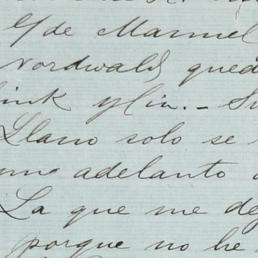 de Manuel
nordwald qued
link y Cia. - Su
Llano solo se
une adelanto
La que me de
porque no he